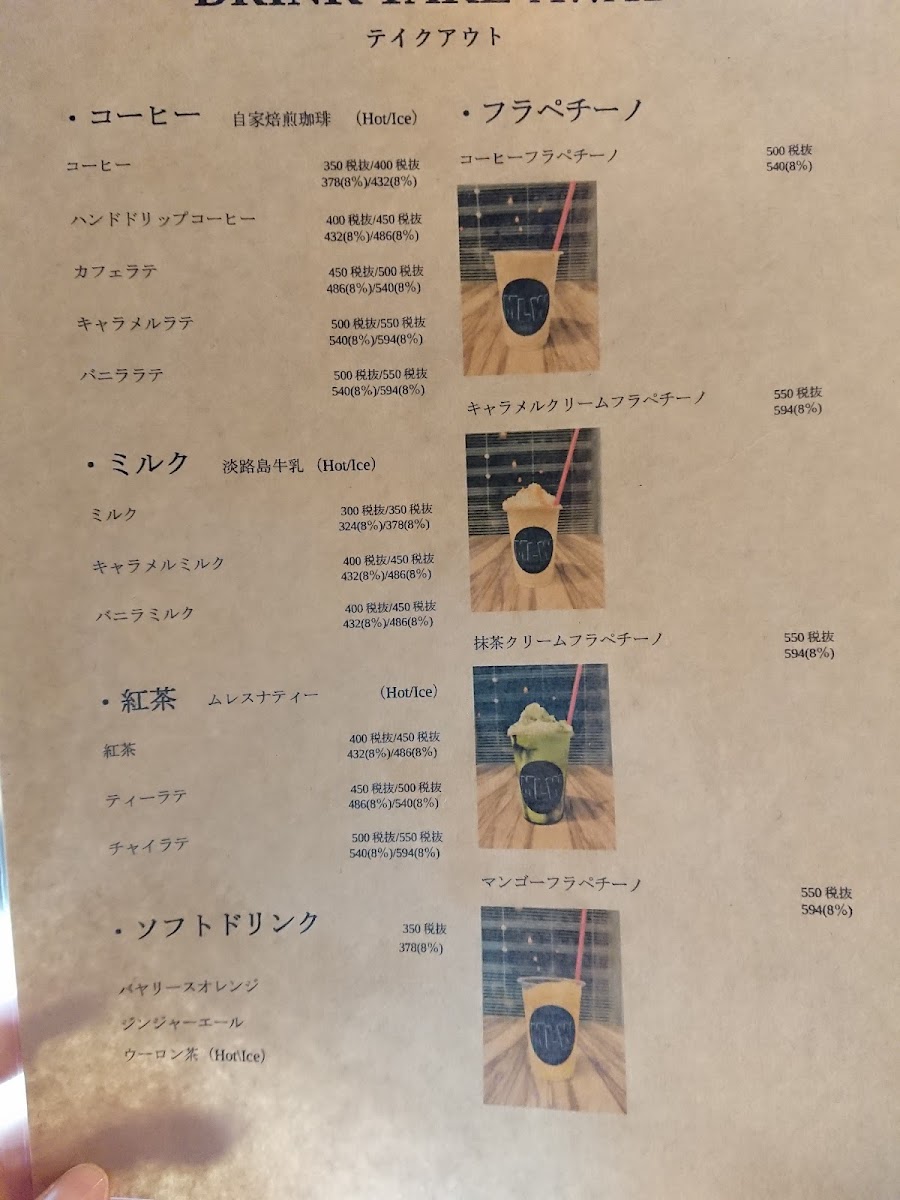 DRINK TAKE AWAY
テイクアウト
・コーヒー 自家焙煎珈琲 （Hot/Ice）
コーヒー 350 税抜/400 税抜
378(8%)/432(8%)
ハンドドリップコーヒー 400 税抜/450 税抜
432(8%)/486(8%)
カフェラテ 450 税抜/500 税抜
486(8%)/540(8%)
キャラメルラテ 500 税抜/550 税抜
540(8%)/594(8%)
バニララテ 500 税抜/550 税抜
540(8%)/594(8%)
・ミルク 淡路島牛乳（Hot/Ice）
ミルク 300 税抜/350 税抜
324(8%)/378(8%)
キャラメルミルク 400 税抜/450 税抜
432(8%)/486(8%)
バニラミルク 400 税抜/450 税抜
432(8%)/486(8%)
・紅茶 ムレスナティー （Hot/Ice）
紅茶 400 税抜/450 税抜
432(8%)/486(8%)
ティーラテ 450 税抜/500 税抜
486(8%)/540(8%)
チャイラテ 500 税抜/550 税抜
540(8%)/594(8%)
・ソフトドリンク 350 税抜
378(8%)
バヤリースオレンジ
ジンジャーエール
ウーロン茶（Hot\Ice）
・フラペチーノ
コーヒーフラペチーノ 500 税抜
540(8%)
キャラメルクリームフラペチーノ 550 税抜
594(8%)
抹茶クリームフラペチーノ 550 税抜
594(8%)
マンゴーフラペチーノ 550 税抜
594(8%)